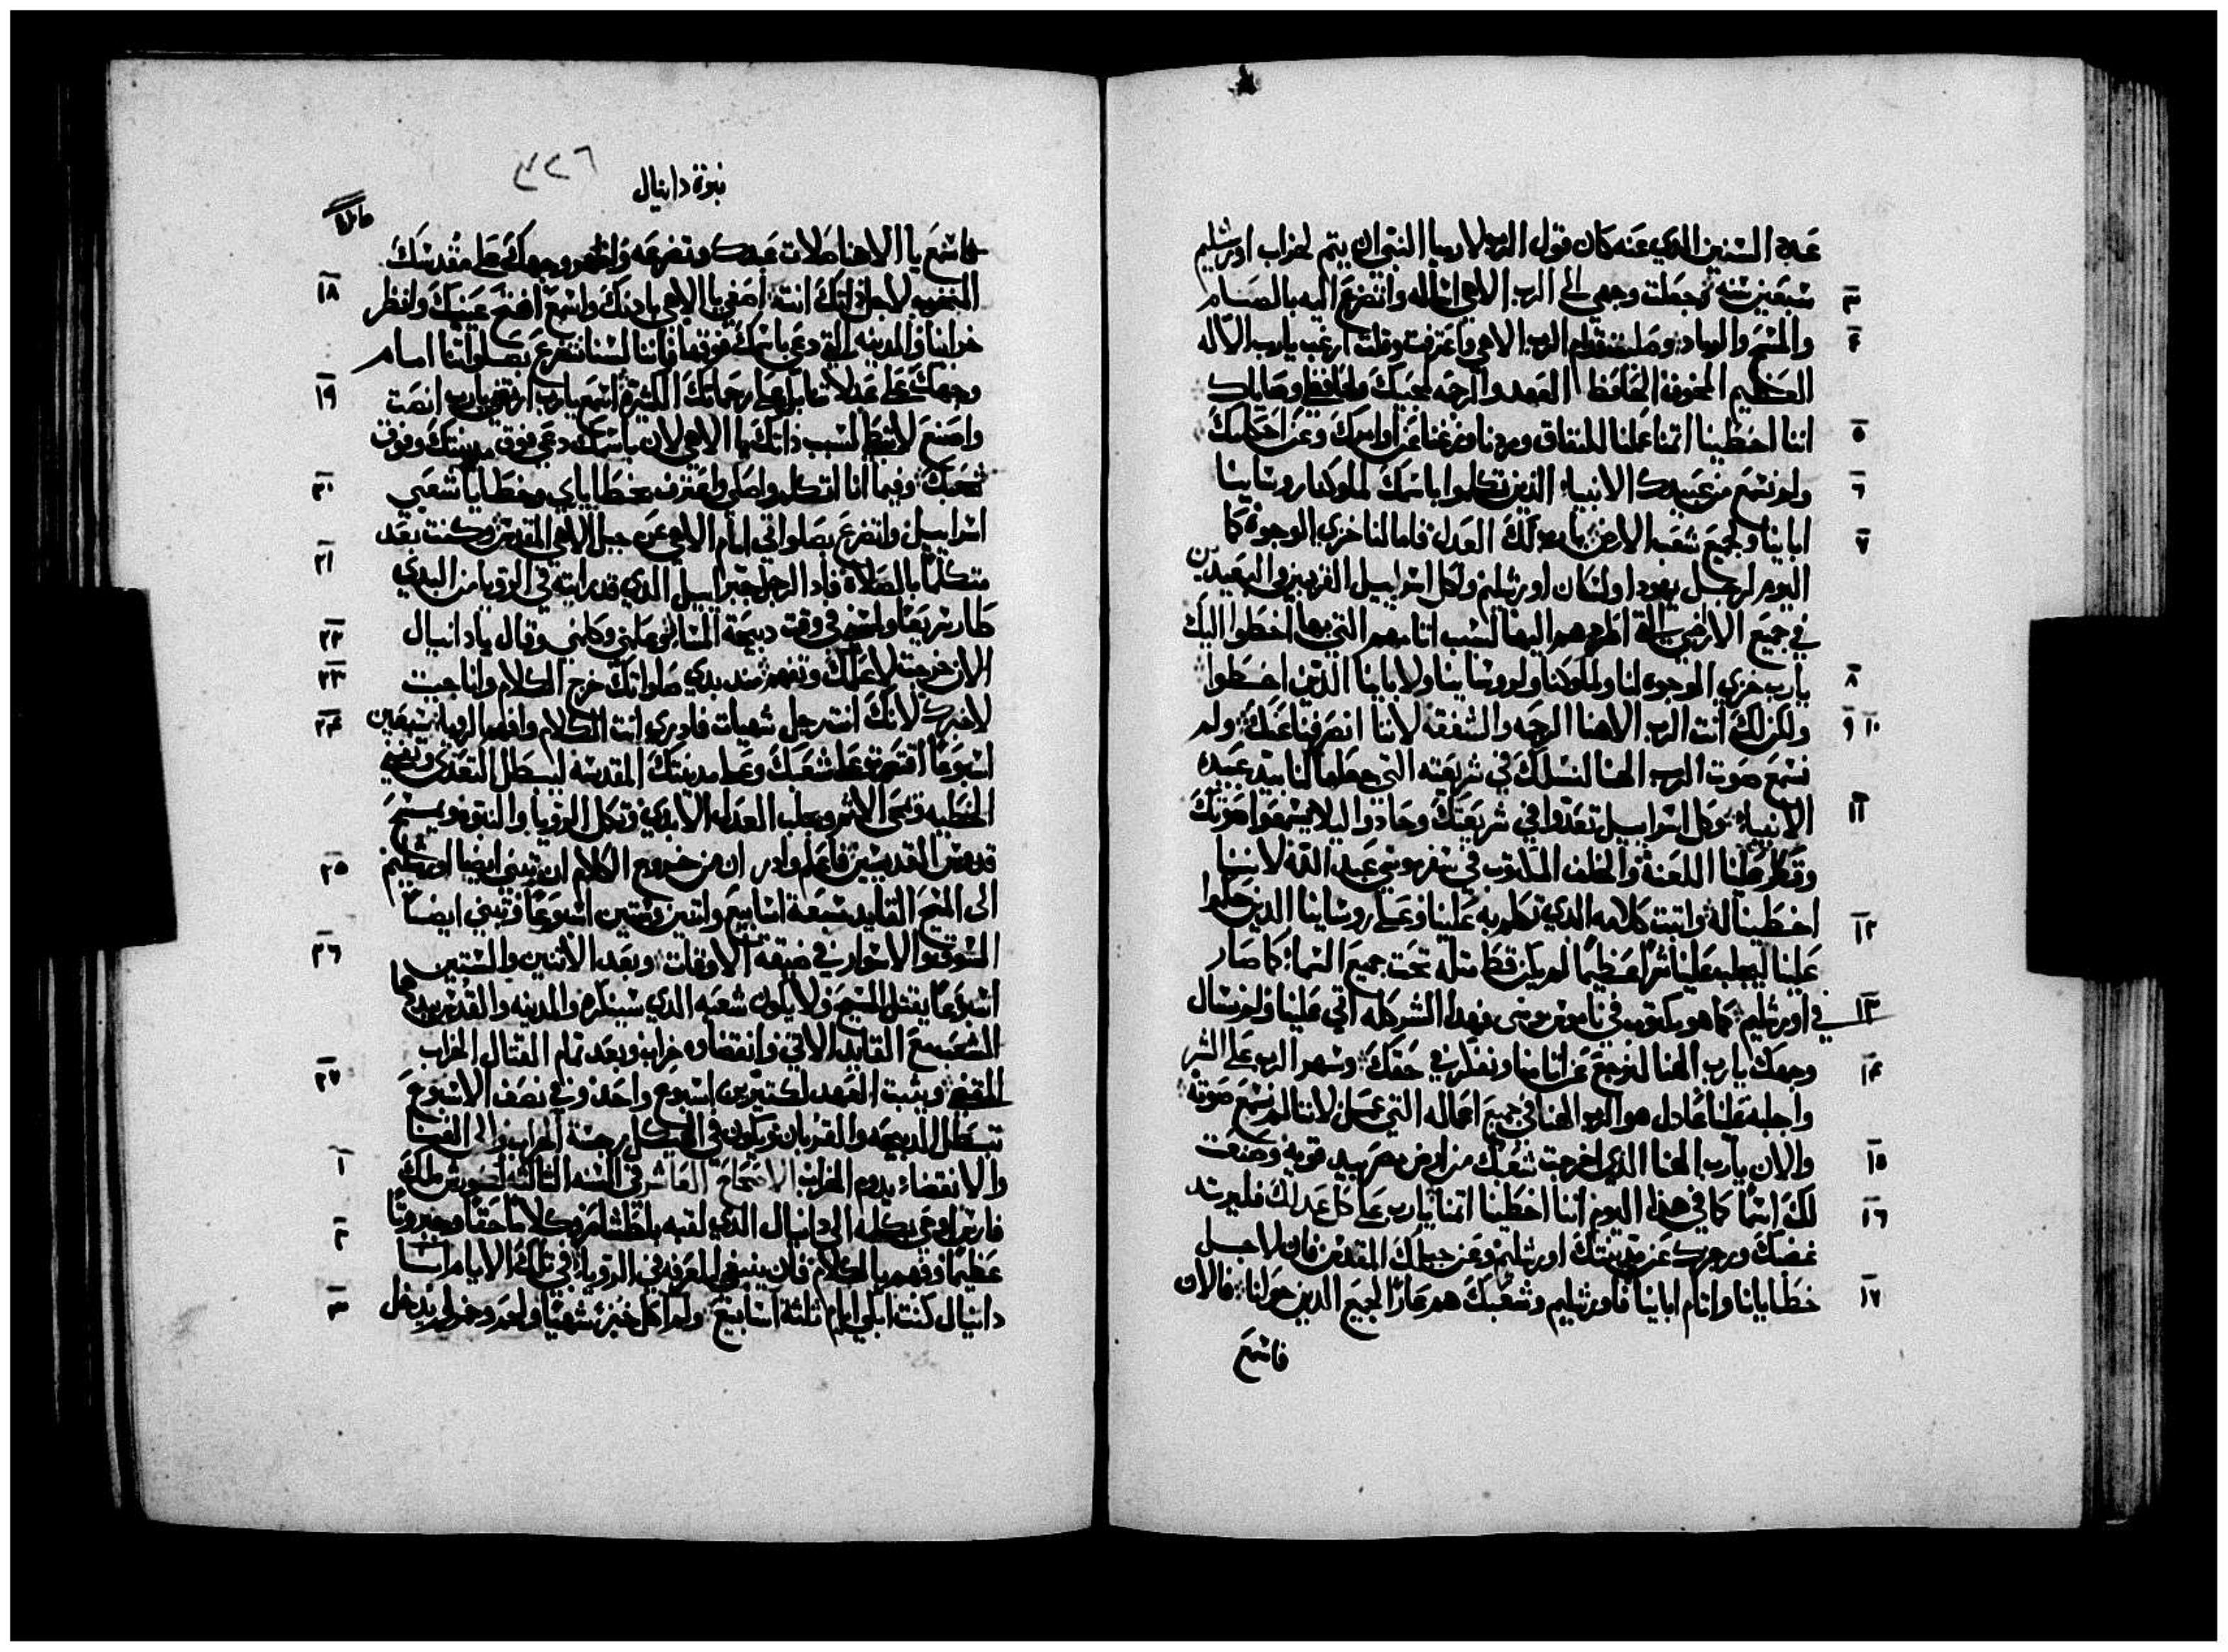 عدة السنين الذي عنه كان قول الرب لارميا النبي ان يتم لخراب اورشليم
٣ سبعين سنه فجعلت وجهي الى الرب الاهي اساله واتضرع اليه بالصيام
٤ والمسح والرماد وصليت قدام الرب الاهي واعترفت وقلت ارغب يا رب الاله
العظيم المخوف الحافظ العهد والرحمه لمحبيك ولحافظي وصاياك
٥ اننا اخطينا اتمنا عملنا للنفاق ومردنا وزغنا عن اوامرك وعن احكامك
٦ ولم نسمع من عبيدك الانبياء الذين تكلموا باسمك لملوكنا روساينا
٧ اباينا ولجميع شعب الارض يا رب لك العدل فاما لنا خزي الوجوه كما
اليوم لرجل يهودا ولسكان اورشليم ولكل اسراييل القريبين والبعيدين
في جميع الاراضي التي اطرحتهم اليها لسبب اتامهم التي بها اخطوا اليك
٨ يا رب خزي الوجوه لنا ولملوكنا ولروساينا ولاباينا الذين اخطوا
٩ ١٠ ولكن لك انت الرب الاهنا الرحمه والشفقه لاننا انصرفنا عنك ولم
نسمع صوت الرب الهنا لنسلك في شريعته التي جعلها لنا بيد عبيده
١١ الانبياء وكل اسراييل تعدوا في شريعتك وحادوا ليلا يسمعوا صوتك
وقطر علينا اللعنة والحلف المكتوب في سفر موسى عبد الله لاننا
١٢ اخطينا له واتبت كلامه الذي تكلم به علينا وعلى روساينا الذين حكموا
علينا ليجلب علينا شرا عظيما لم يكن قط مثله تحت جميع السما كما صار
١٣ في اورشليم كما هو مكتوب في ناموس موسى فهدا الشر كله اتى علينا ولم نسال
١٤ وجهك يا رب الهنا لنرجع عن اتامنا ونفكر في حقك وسهر الرب على الشر
واجلبه علينا عادل هو الرب الهنا في جميع اعماله التي عمل لاننا لم نسمع صوته
١٥ والان يا رب الهنا الذي اخرجت شعبك من ارض مصر بيد قويه وصنعت
١٦ لك اسما كما في هدا اليوم اننا اخطينا اتمنا يا رب على كل عدلك فليرتد
غضبك ورجزك عن مدينتك اورشليم وعن جبلك المقدس فان لاجل
١٧ خطايانا واتام اباينا فاورشليم وشعبك هم عارا لجميع الذين حولنا فالان
فاسمع
نبوة دانيال
٣٢٦
فاسمع يا الاهنا صلاة عبدك وتضرعه واظهر وجهك على مقدسك
١٨ المخرب لاجل ذاتك انت اصغي يا الاهي بادنك واسمع افتح عينيك وانظر
خرابنا والمدينه التي دعي باسمك فوقها فاننا لسنا نتضرع بصلواتنا امام
١٩ وجهك على عدلاتنا بل على رحماتك الكثيرة اسمع يا رب ارتضي يا رب انصت
واصنع لا تبطا لسبب ذاتك يا الاهي لان باسمك دعي فوق مدينتك وفوق
٢٠ شعبك وفيما انا اتكلم واصلي واعترف بخطاياي وخطايا شعبي
اسراييل واتضرع بصلواتي امام الاهي عن جبل الاهي المقدس وكنت بعد
٢١ متكلما بالصلاة فاد الرجل جبراييل الذي قد رايته في الرويا من البدي
٢٢ طار سريعا ولمسني في وقت دبيحة المسا وعلمني وكلمني وقال يا دانيال
٢٣ الان خرجت لاعلمك وتفهم مند بدي صلواتك خرج الكلام وانا جيت
٢٤ لاخبرك لانك انت رجل شهيات فادري انت الكلام وافهم الرويا سبعين
اسبوعا اقتصرت على شعبك وعلى مدينتك المقدسه ليبطل التعدي وتفنى
الخطيه وتمحى الاثم ويجلب العدل الابدي وتكمل الرويا والنبوه ويمسح
٢٥ قدوس القديسين فاعلم وادر ان من خروج الكلام ان تبنى ايضا اورشليم
الى المسيح القايد سبعة اسابيع واتنين وستين اسبوعا وتبنى ايضا
٢٦ السوق والاسوار في ضيقة الاوقات وبعد الاتنين والستين
اسبوعا يقتل المسيح ولا يكون شعبه الذي سينكره والمدينه والقدس يهدمهما
الشعب مع القايد الاتي وانقضاوه خراب وبعد تمام القتال الخراب
٢٧ المقضي ويثبت العهد لكتيرين اسبوع واحد وفي نصف الاسبوع
تبطل الدبيحه والقربان ويكون في الهيكل رجسة الخراب والى الفنا
١ والانقضاء يدوم الخراب الاصحاح العاشر في السنه الثالثه لكورش ملك
فارس اوحي بكلمه الى دانيال الذي لقبه بلطشاصر وكلاما حقا وجبروتا
٢ عظيما وفهم بالكلام فان ينبغي المعرفه في الرويا في تلك الايام انا
٣ دانيال كنت ابكي ايام ثلثة اسابيع ولم اكل خبز شهيا ولحم وخمر لم يدخل